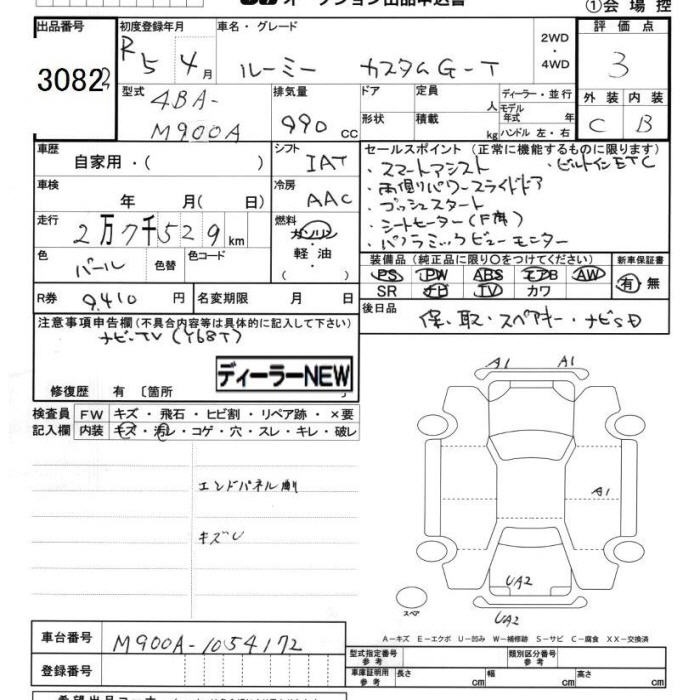 オークション出品申込書
①会場控
出品番号 初度登録年月 車名・グレード 評価点
30822 R5 4月 ルーミー カスタムG-T 2WD・4WD 3
型式 4BA-M900A 排気量 990 cc ドア 形状 定員 人 積載 kg ディーラー・並行 モデル年式 年 ハンドル 左・右 外装 内装
C B
車歴 自家用・( ) シフト IAT セールスポイント(正常に機能するものに限ります)
・スマートアシスト ・ビルトインETC
・両側パワースライドドア
車検 年 月( 日) 冷房 AAC ・プッシュスタート
・シートヒーター(F席)
走行 2万7千529km 燃料 ガソリン・軽油・( ) ・パノラミックビューモニター
色 パール 色替 色コード 装備品(純正品に限り○をつけてください) 新車保証書
PS PW ABS エアB AW 有・無
SR ナビ TV カワ
R券 9410円 名変期限 月 日 後日品 保、取・スペアキー・ナビSD
注意事項申告欄(不具合内容等は具体的に記入して下さい)
ナビ-TV(Y68T)
ディーラーNEW
修復歴 有〔箇所 〕
検査員 FW キズ・飛石・ヒビ割・リペア跡・×要
記入欄 内装 キズ・汚レ・コゲ・穴・スレ・キレ・破レ
エンドパネル
キズU
A1 A1
A1
UA2
UA2
スペア
A-キズ E-エクボ U-凹み W-補修跡 S-サビ C-腐食 XX-交換済
車台番号 M900A-1054172
型式指定番号 参考 類別区分番号 参考
登録番号 車庫証明用 参考 長さ cm 幅 cm 高さ cm
希望出品コーナー